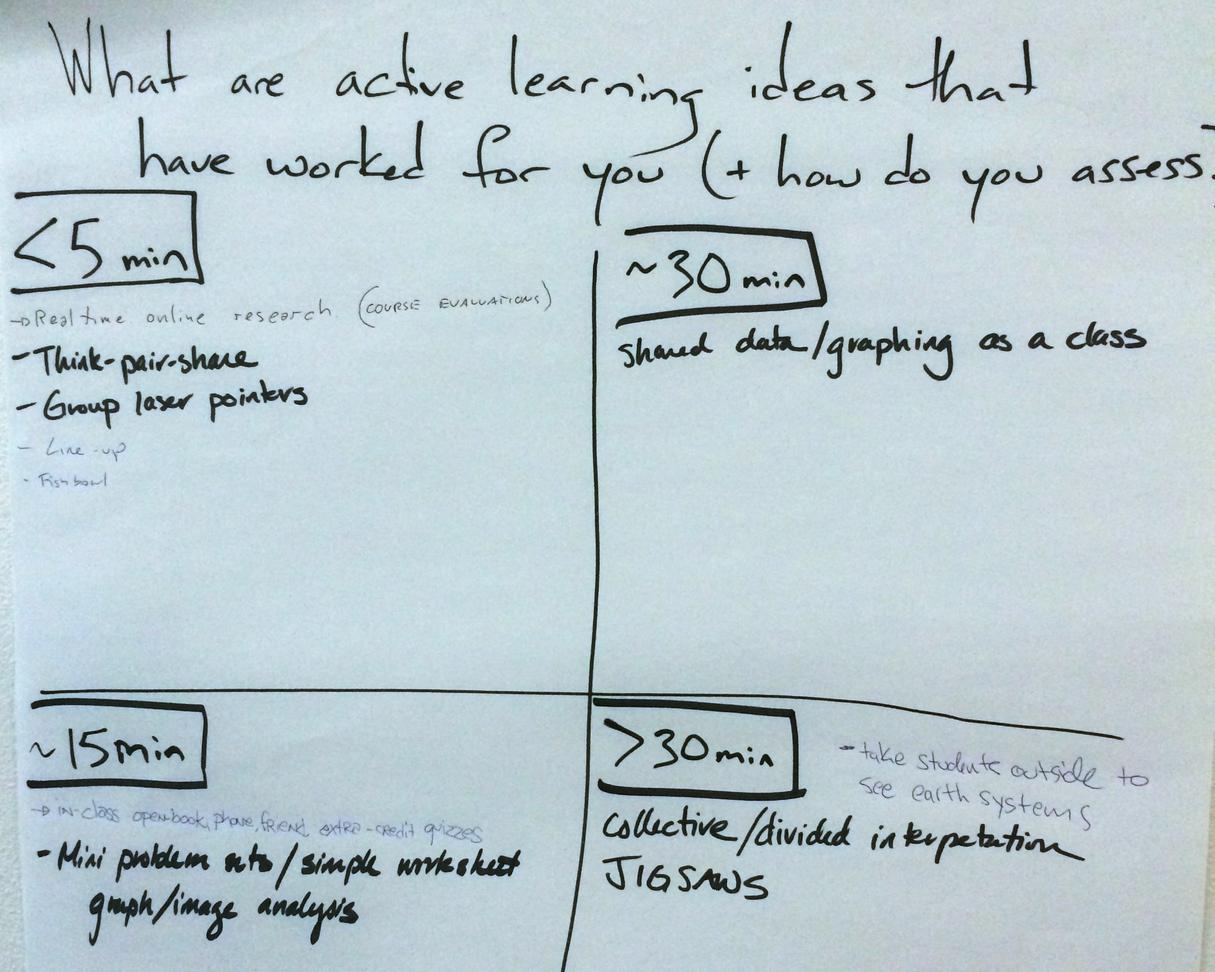 What are active learning ideas that
have worked for you (+ how do you assess?
<5 min
→Real time online research (COURSE EVALUATIONS)
- Think-pair-share
- Group laser pointers
- Line-up
- Fishbowl
~30 min
shared data/graphing as a class
~15min
→ in-class open book, phone, friend, extra-credit quizzes
- Mini problem sets/simple worksheet
graph/image analysis
>30min
- take students outside to
see earth systems
collective/divided interpetation
JIGSAWS